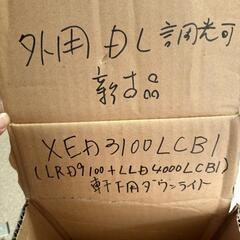 外用DL 調光可
新古品
XED3100LCB1
(LRD9100+LLD4000LCB1)
軒下用ダウンライト